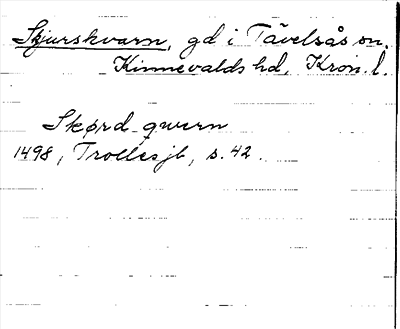 Skjurskvarn, gd i Tävelsås sn.
Kinnevalds hd, Kron. l.
Skørd_qwern
1498, Trolles jb, s. 42.